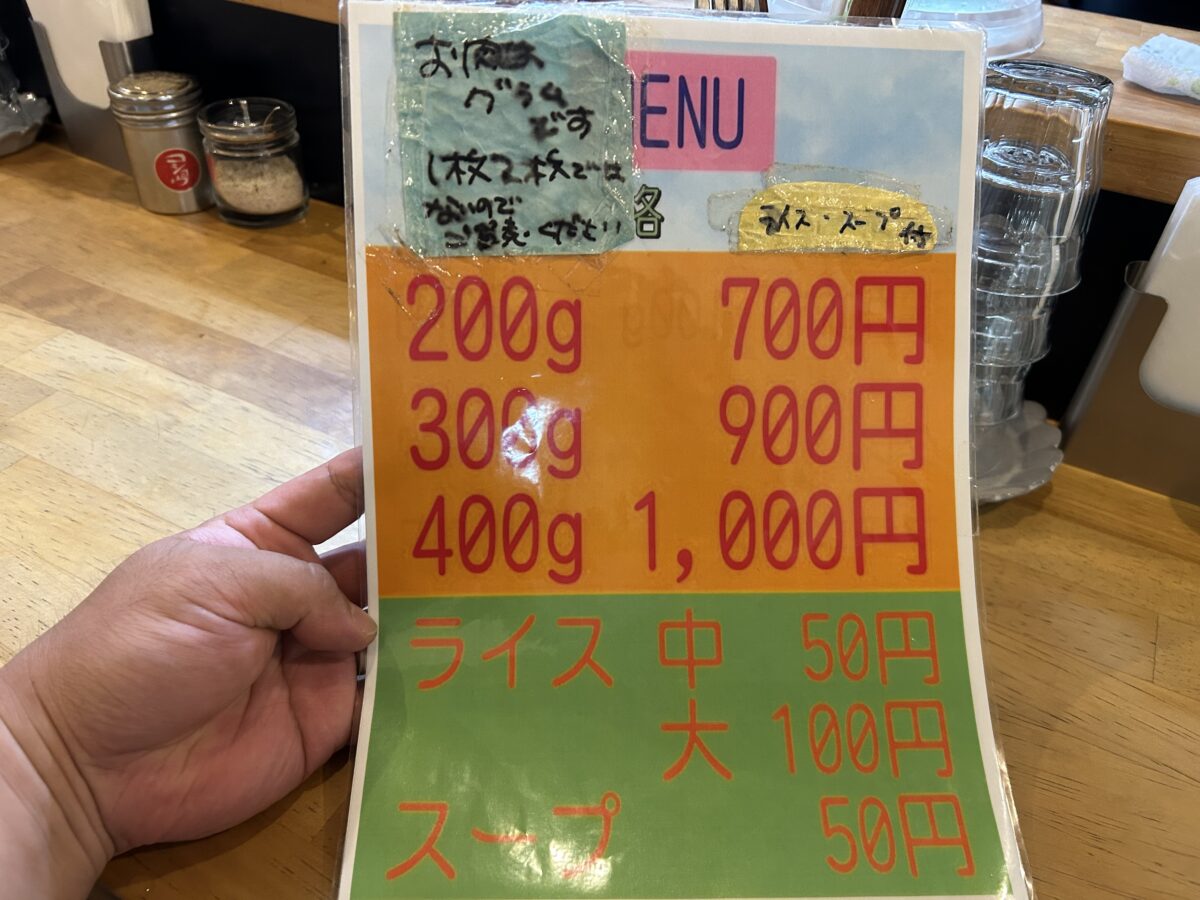 お肉は
グラム
です
1枚2枚では
ないので
ご注意ください
ENU
各
ライス・スープ付
200g 700円
300g 900円
400g 1,000円
ライス 中 50円
大 100円
スープ 50円
コショウ